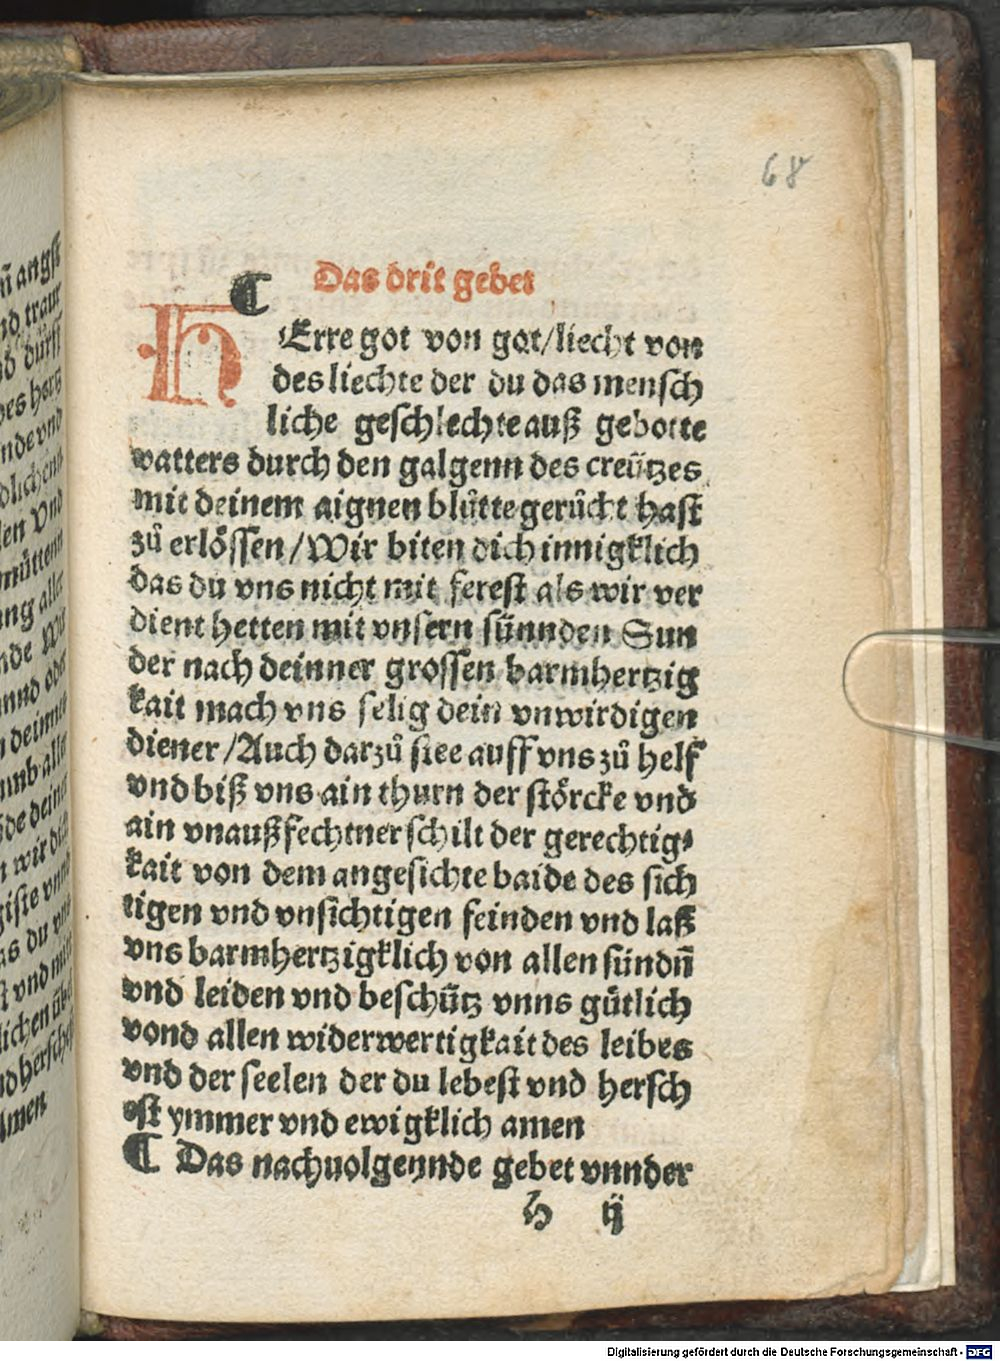 68
¶ Das drit gebet
HErre got von got/liecht von
des liechte der du das mensch
liche geschlechte auß gebotte
vatters durch den galgenn des creützes
mit deinem aignen blůtte gerůcht hast
zů erlössen/Wir biten dich innigklich
das du vns nicht mit ferest als wir ver
dient hetten mit vnsern sünnden Sun
der nach deinner grossen barmhertzig
kait mach vns selig dein vnwirdigen
diener/Auch darzů stee auff vns zů helf
vnd biß vns ain thurn der störcke vnd
ain vnaußfechtner schilt der gerechtig⸗
kait von dem angesichte baide des sich
tigen vnd vnsichtigen feinden vnd laß
vns barmhertzigklich von allen sündn̄
vnd leiden vnd beschütz vnns gütlich
vond allen widerwertigkait des leibes
vnd der seelen der du lebest vnd hersch
est ymmer vnd ewigklich amen
¶ Das nachuolgennde gebet vnnder
h ij
Digitalisierung gefördert durch die Deutsche Forschungsgemeinschaft - DFG